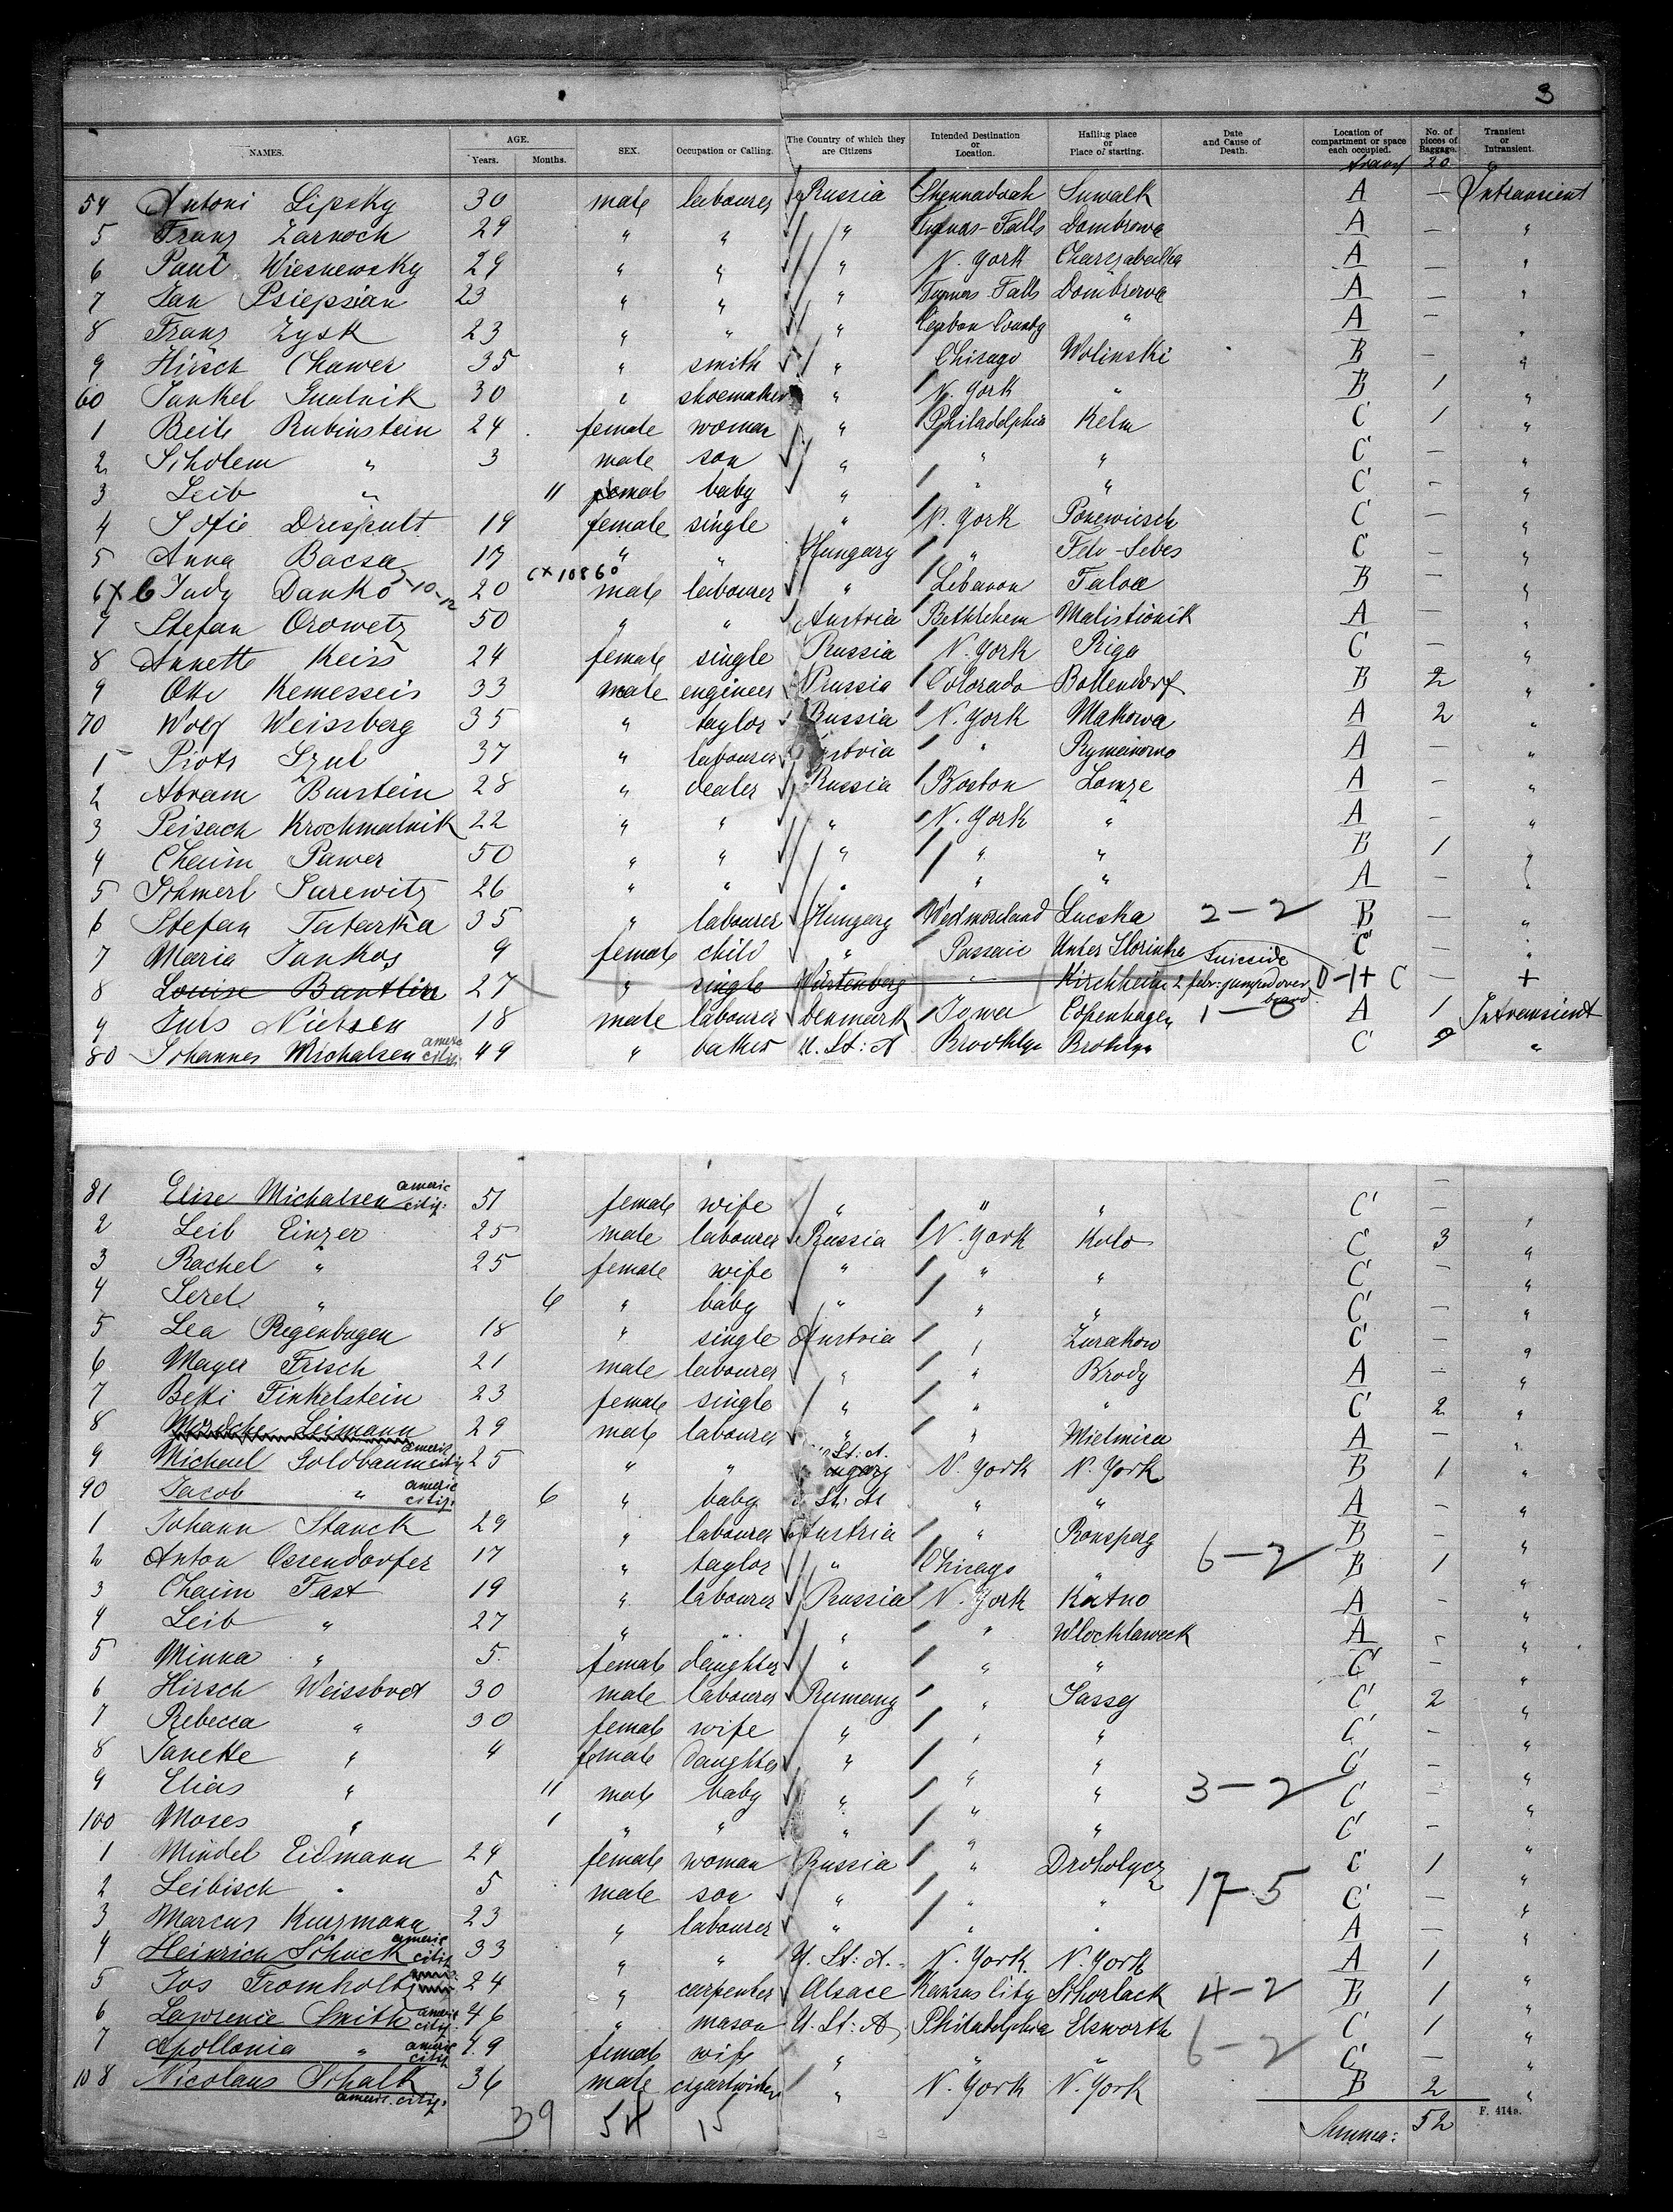 3
NAMES. AGE. Years. Months. SEX. Occupation or Calling. The Country of which they are Citizens Intended Destination or Location. Hailing place or Place of starting. Date and Cause of Death. Location of compartment or space each occupied. No. of pieces of Baggage. Transient or Intransient.
20
54 Antoni Lipsky 30 male labourer Russia Shennadoah Suwalk A — Intransient
5 Franz Zarnoch 29 " " " Falls Dombrowa A — "
6 Paul Wiesnewsky 29 " " " N. York A — "
7 Jan Psiepsian 23 " " " Turners Falls Dombrowa A — "
8 Franz Zysk 23 " " " Carbon County " A — "
9 Hirsch Chawer 35 " smith " Chicago Wolinski B — "
60 Jankel Gudnik 30 " shoemaker " N. York " B 1 "
1 Beile Rubinstein 24 female woman " Philadelphia Kelm C 1 "
2 Scholem " 3 male son " " " C — "
3 Leib " 11 male baby " " " C — "
4 Sofie Dresputt 19 female single " N. York Ponewiesch C — "
5 Anna Bacsa 17 " " Hungary " Felv-Sebes C — "
6 X Judy Danko 5-10-12 20 CX10860 male labourer " Lebanon Faloa B — "
7 Stefan Orowetz 50 " " Austria Bethlehem Malistionik A — "
8 Annette Keiss 24 female single Russia N. York Riga C — "
9 Kemesseis 33 male engineer Prussia Colorado Bottendorf B 2 "
70 Wolf Weissberg 35 " taylor Russia N. York Makowa A 2 "
1 Piotr Szul 37 " labourer Austria " A — "
2 Abram Burstein 28 " dealer Russia Boston Lomze A — "
3 Peisach Krochmalnik 22 " " " N. York " A — "
4 Chaim Pawer 50 " " " " " B 1 "
5 Schmerl Surewitz 26 " " " " " A — "
6 Stefan Tatarka 35 " labourer Hungary Westmoreland Lucska 2-2 B — "
7 Maria Jankos 9 female child " Passaic Unter Slorinka C — "
8 Louise Bantlin 27 " single Würtenberg " Kirchheim Suicide 2 febr: jumped over board D-1+ C — +
9 Juls Nielsen 18 male labourer Denmark Iowa Copenhagen 1-0 A 1 Intransient
80 Johannes Michalsen americ citiz: 49 " baker U. St: A Brooklyn Broklyn C 9 "
81 Elise Michalsen americ citiz: 51 female wife " " " C — "
2 Leib Einzer 25 male labourer Russia N. York Kolo C 3 "
3 Rachel " 25 female wife " " " C — "
4 Serel " 6 " baby " " " C — "
5 Lea Regenbogen 18 " single Austria " Zurakow C — "
6 Mayer Frisch 21 male labourer " " Brody A — "
7 Betti Finkelstein 23 female single " " " C 2 "
8 Mordche Leimann 29 male labourer " " Mielnica A — "
9 Michael Goldbaum americ city 25 " " St: A. N. York N. York B 1 "
90 Jacob " americ citiz: 6 " baby St: A " " A — "
1 Johann Stanek 29 " labourer Austria " Ronsperg B — "
2 Anton Ossendorfer 17 " taylor " Chicago " 6-2 B 1 "
3 Chaim Fast 19 " labourer Russia N. York Kutno A — "
4 Leib " 27 " " " " Wlocklaweck A — "
5 Minna " 5 female daughter " " " C — "
6 Hirsch Weissbrod 30 male labourer Rumany " Jassy C 2 "
7 Rebecca " 30 female wife " " " C — "
8 Janette " 4 female daughter " " " C — "
9 Elias " 11 male baby " " " 3-2 C — "
100 Moses " 1 " " " " " C — "
1 Mindel Eidmann 24 female woman Russia " Droholycz C 1 "
2 Leibisch " 5 male son " " " 17-5 C — "
3 Marcus Kurzmann 23 " labourer " " " A — "
4 Heinrich Schuck americ citiz 33 " " U. St: A. N. York. N. York A 1 "
5 Jos Fromholtz 24 " carpenter Alsace Kansas City Schorlack 4-2 B 1 "
6 Lawrence Smith americ city: 46 " mason U. St: A Philadelphia Elsworth C 1 "
7 Apollonia " americ city 49 female wife " " " 6-2 C — "
108 Nicolaus Schalk americ. city: 36 male " N. York N. York B 2 "
39 54 15 Summa: 52
F. 414a.